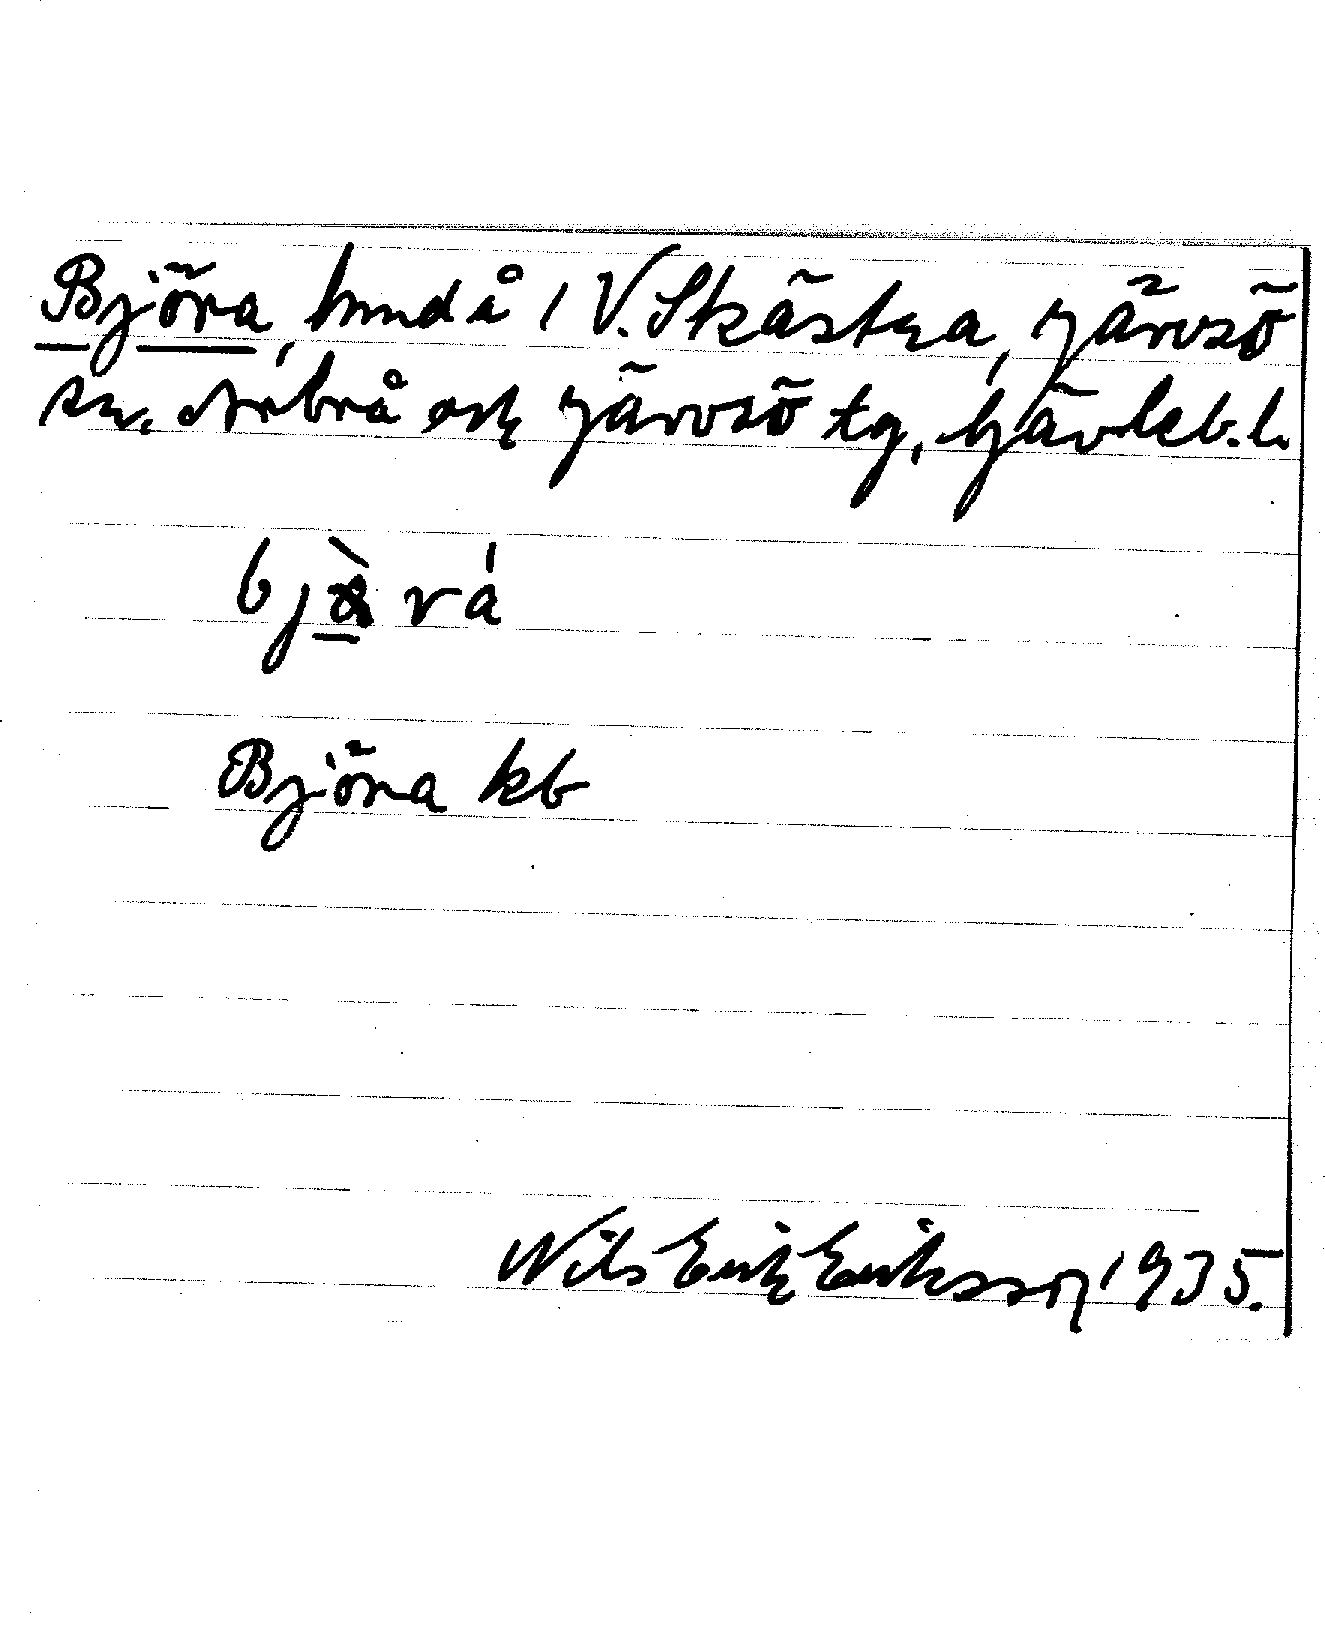 Björa, hmd å i V. Skästra, Järvsö
sn. Arbrå och Järvsö tg, Gävleb. l.
rá
Björa kb
Nils Erik Eriksson 1935.